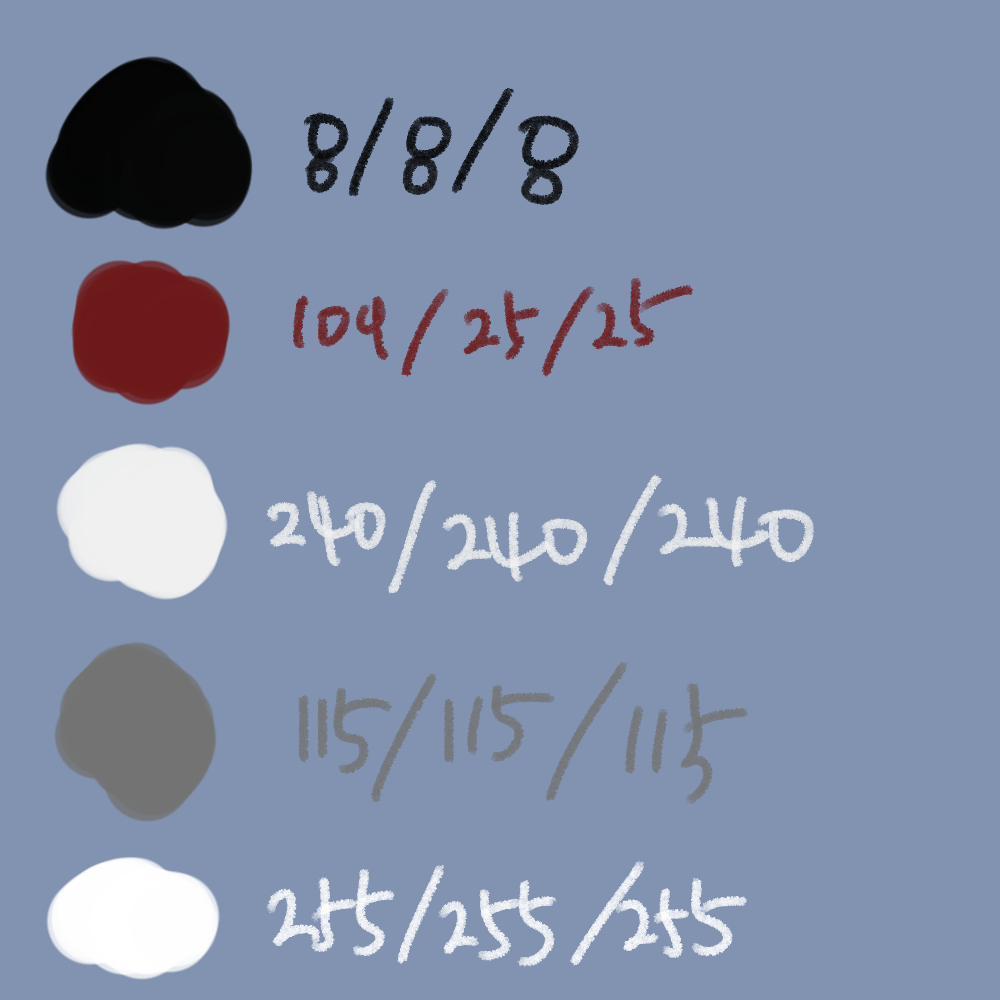 8/8/8
109/25/25
240/240/240
115/115/115
255/255/255